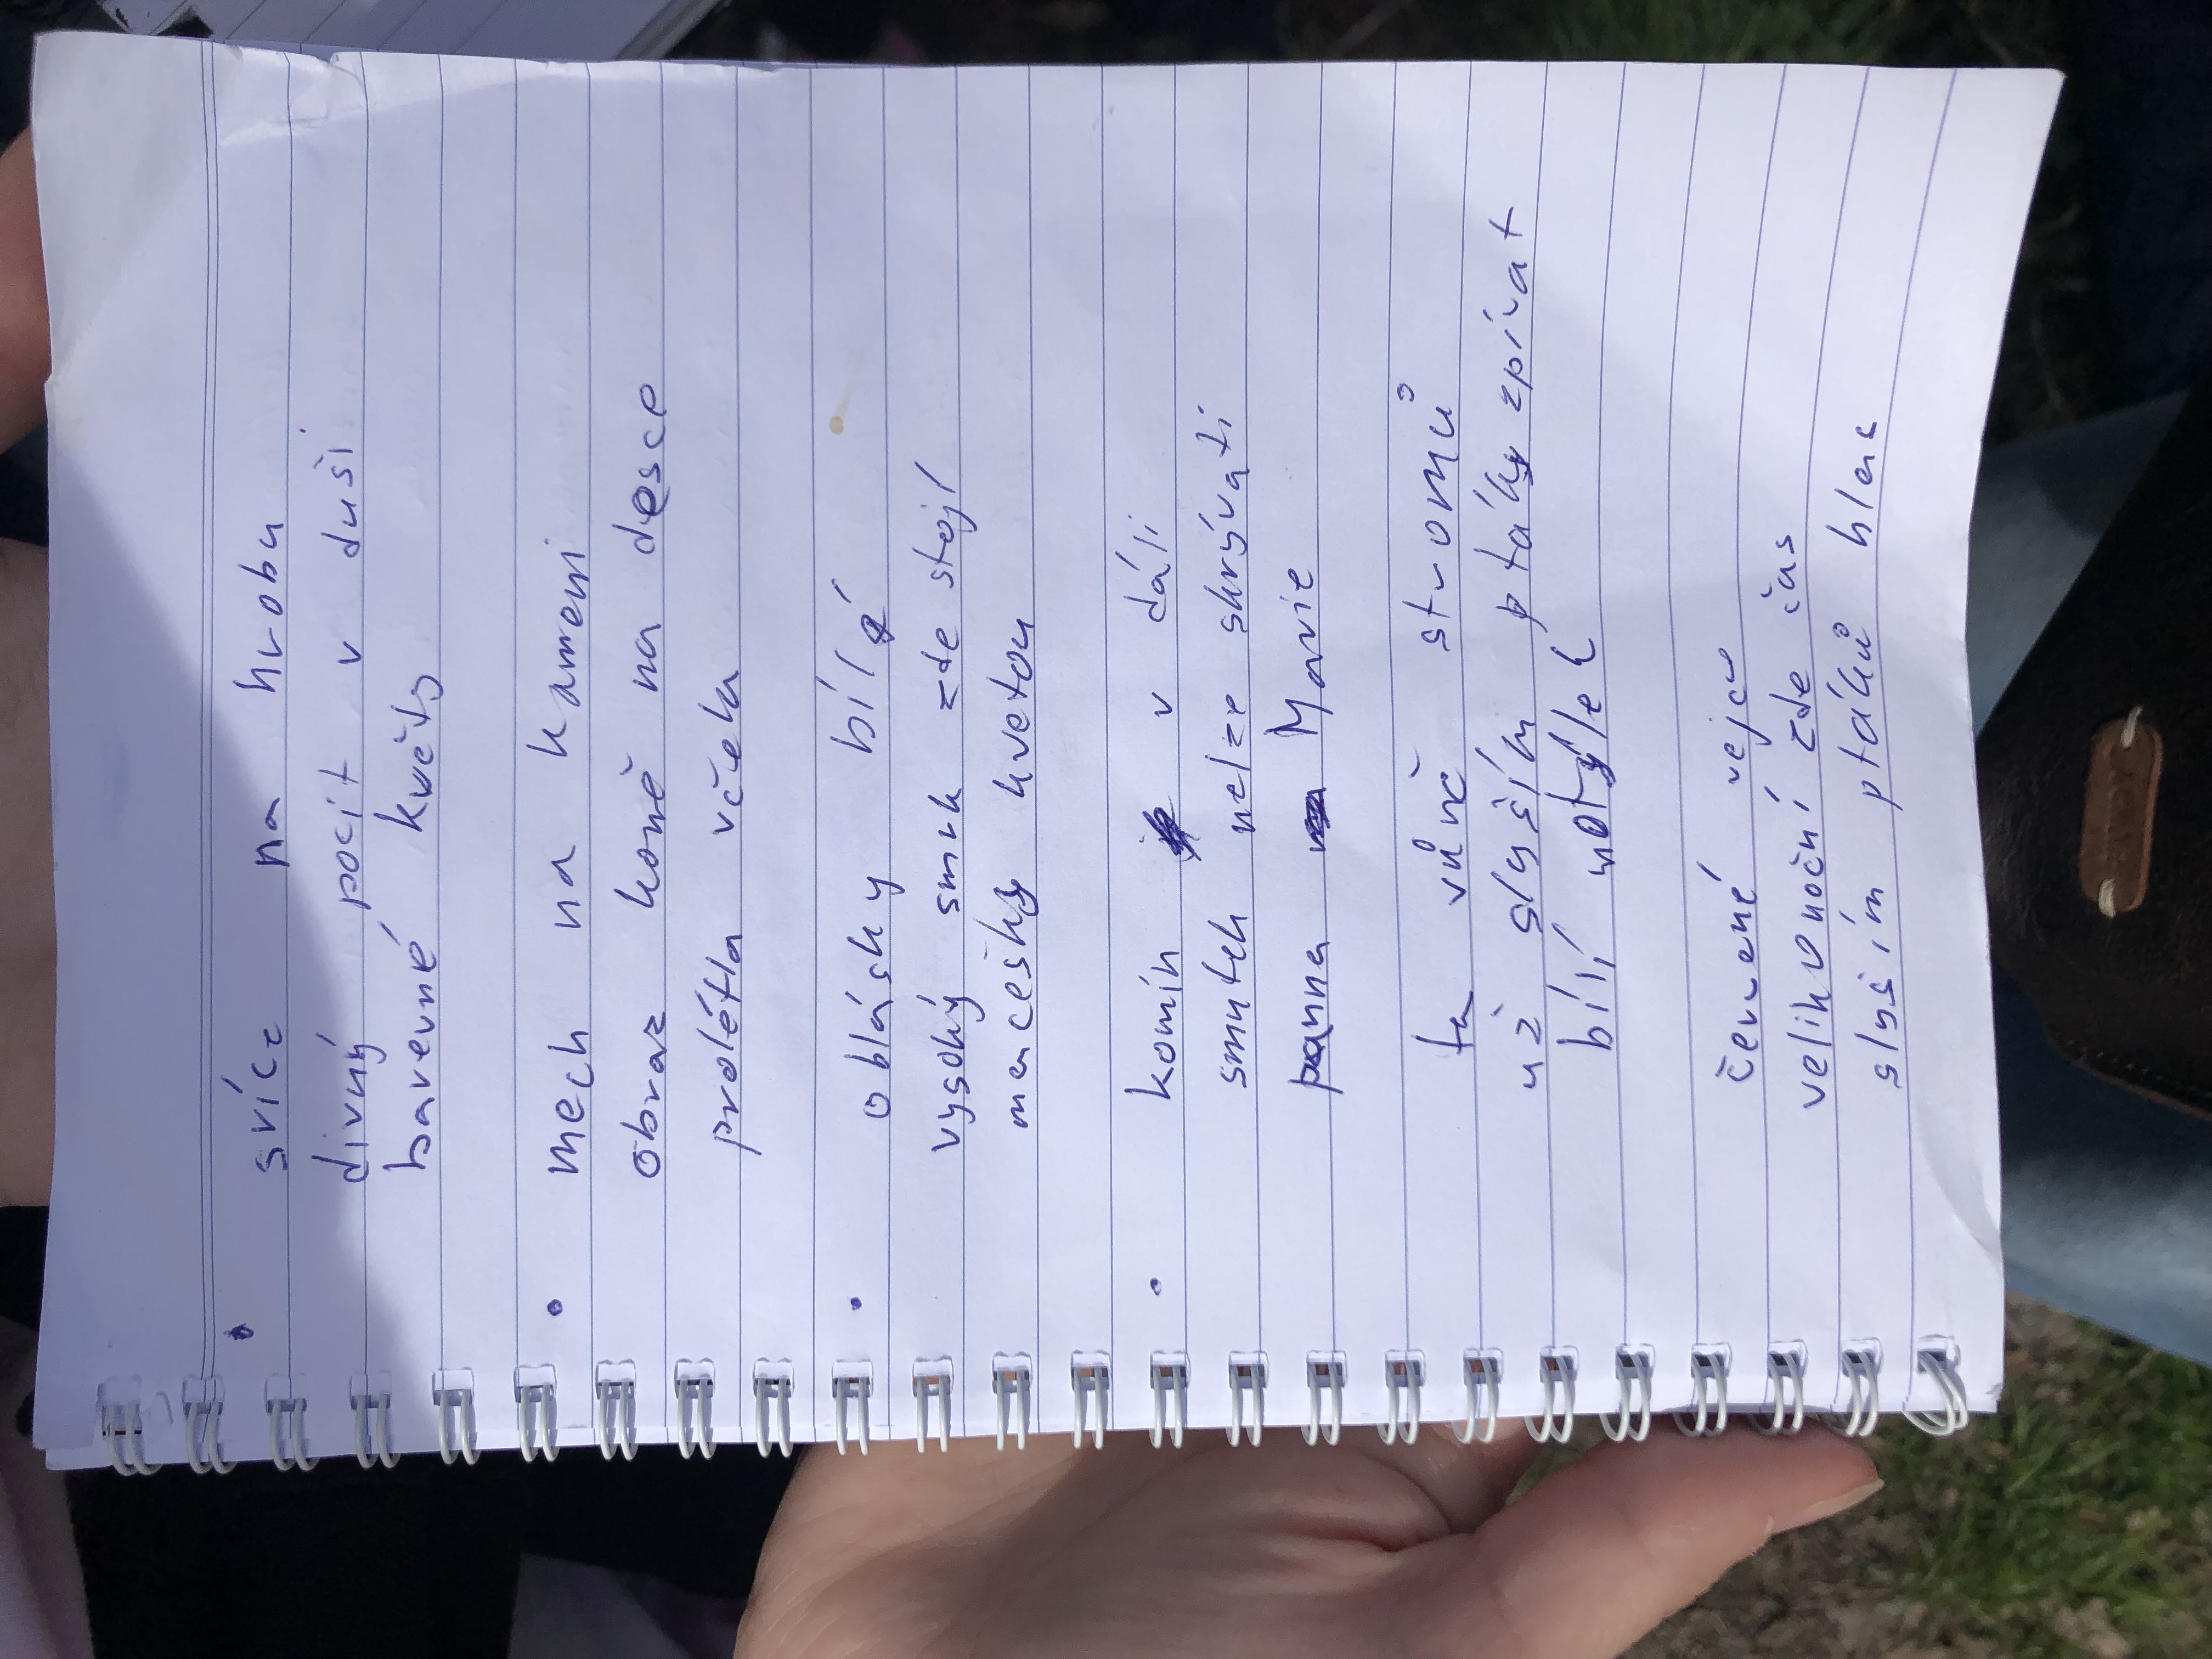 • svícz na hrobu
divný pocit v duši
barevné květy
• mech na kameni
obraz koně na desce
prolétla včela
• oblásky bílé
vysoký smrk zde stojí
macešky kvetou
• komín v dáli
smutek nelze skrývati
panna Marie
ta vůně stromů
už slyším ptáky zpívat
bílí motýlek
červené vejce
velikonoční zde čas
slyším ptáků hlas